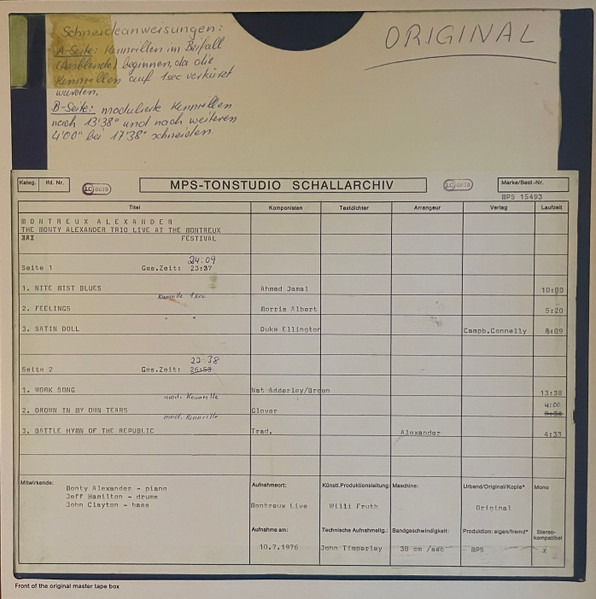 Schneideanweisungen:
A-Seite: Kennrillen im Beifall
(Ausblende) beginnen, da die
Kennrillen auf 1sec verkürzt
wurden.
B-Seite: modulierte Kennrillen
nach 13'38" und nach weiteren
4'00" bei 17'38" schneiden
ORIGINAL
Kateg. lfd. Nr. MPS-TONSTUDIO SCHALLARCHIV Marke/Best.-Nr.
MPS 15493
Titel Komponisten Textdichter Arrangeur Verlag Laufzeit
MONTREUX ALEXANDER
THE MONTY ALEXANDER TRIO LIVE AT THE MONTREUX
FESTIVAL
24:09
Seite 1 Ges.Zeit: 23:37
1. NITE MIST BLUES Ahmed Jamal 10:00
Kennrille 1sec
2. FEELINGS Morris Albert 5:20
3. SATIN DOLL Duke Ellington Campb.Connelly 8:09
23:38
Seite 2 Ges.Zeit:
1. WORK SONG Nat Adderley/Brown 13:38
mod. Kennrille
4:00
2. DROWN IN MY OWN TEARS Glover
mod. Kennrille
3. BATTLE HYMN OF THE REPUBLIC Trad. Alexander 4:33
Mitwirkende:
Monty Alexander - piano
Jeff Hamilton - drums
John Clayton - bass
Aufnahmeort: Künstl.Produktionsleitung: Maschine: Urband/Original/Kopie* Mono
Montreux Live Willi Fruth Original
Aufnahme am: Technische Aufnahmeltg.: Bandgeschwindigkeit: Produktion: eigen/fremd* Stereo-
kompatibel
10.7.1976 John Timperley 38 cm /sec MPS x
Front of the original master tape box